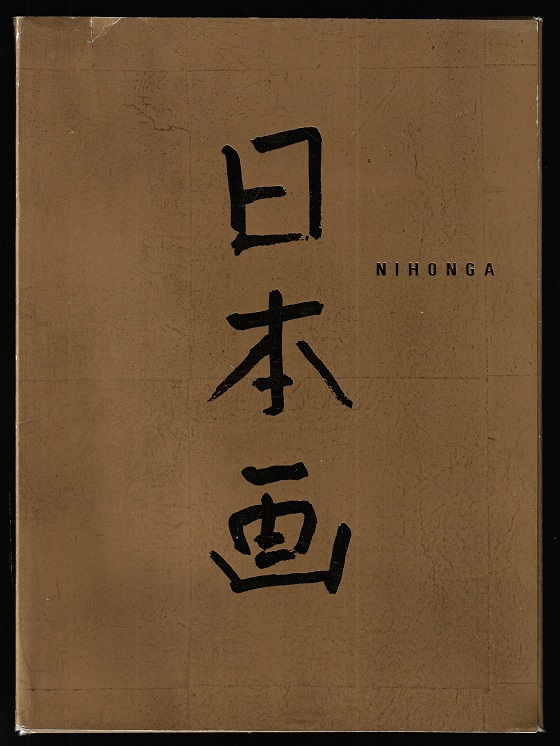 日本画
NIHONGA